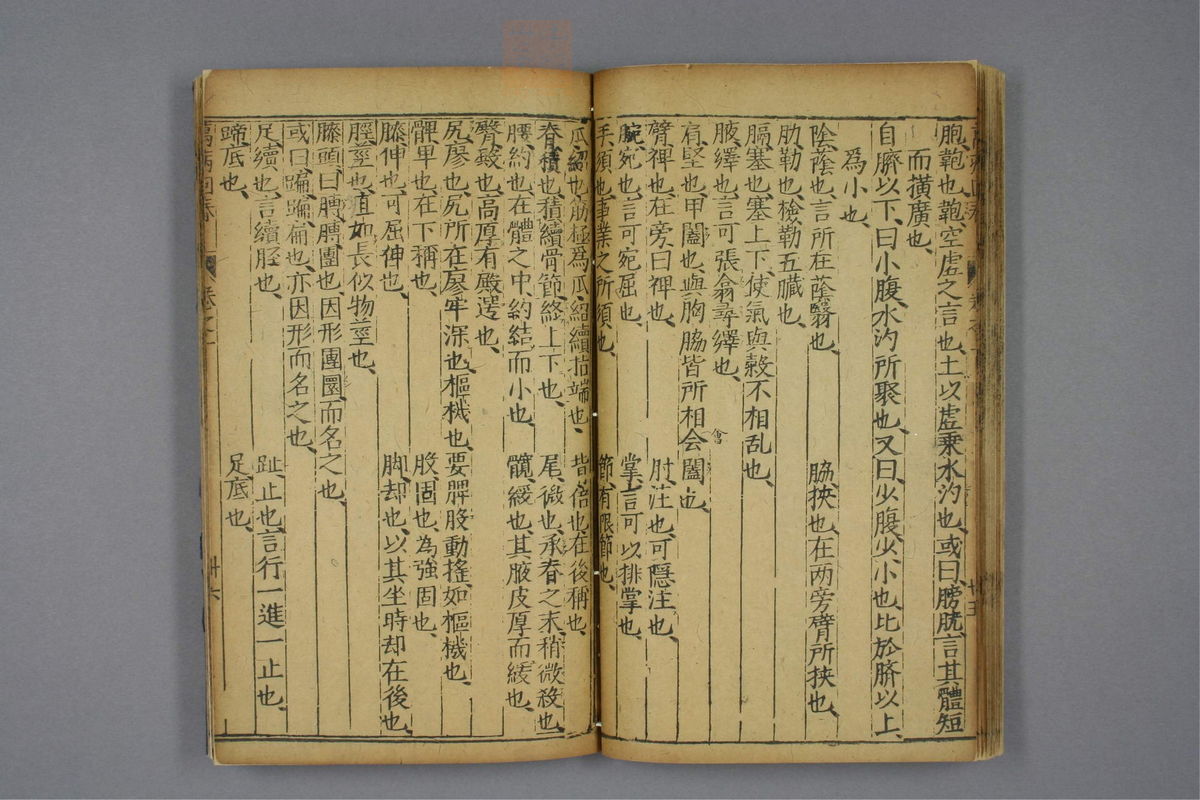 胞鞄也、鞄空虛之言也、土以虛乗水汋也、或曰膀胱、言其體短
而撗廣也、
自臍以下、曰小腹水汋所聚也、又曰少腹、少小也、比於臍以上、
為小也、
陰蔭也、言所在蔭翳也、 脇挾也、在两旁臂所挾也、
肋勒也、檢勒五臓也、
膈塞也、塞上下、使氣與穀不相乱也、
腋繹也、言可張翕尋繹也、
肩堅也、甲闔也、與胸脇皆所相会闔也、
會
臂裨也、在旁曰裨也、 肘注也、可隱注也、
腕宛也、言可宛屈也、 掌言可以排掌也、
手須也、事業之所須也、 節有限節也、
爪紹也、筋極為爪、紹續指端也、 背倍也、在後稱也、
脊積也、積續骨節、終上下也、 尾微也、承脊之末、稍微殺也、
腰約也、在體之中、約結而小也、 髖緩也、其腋皮厚而緩也、
臀殿也、高厚有殿遌也、
尻廖也、尻所在廖牢深也、樞機也、要脾股動搖、如樞機也、
髀卑也、在下稱也、 股固也、為強固也、
膝伸也、可屈伸也、 脚却也、以其坐時却在後也、
脛莖也、直如長似物莖也、
膝頭曰膊膊團也、因形團圜而名之也、
或曰蹁、蹁扁也、亦因形而名之也、
足續也、言續脛也、 趾止也、言行一進一止也、
蹄底也、 足底也、
萬病回春 卷之一 廿六
廿五